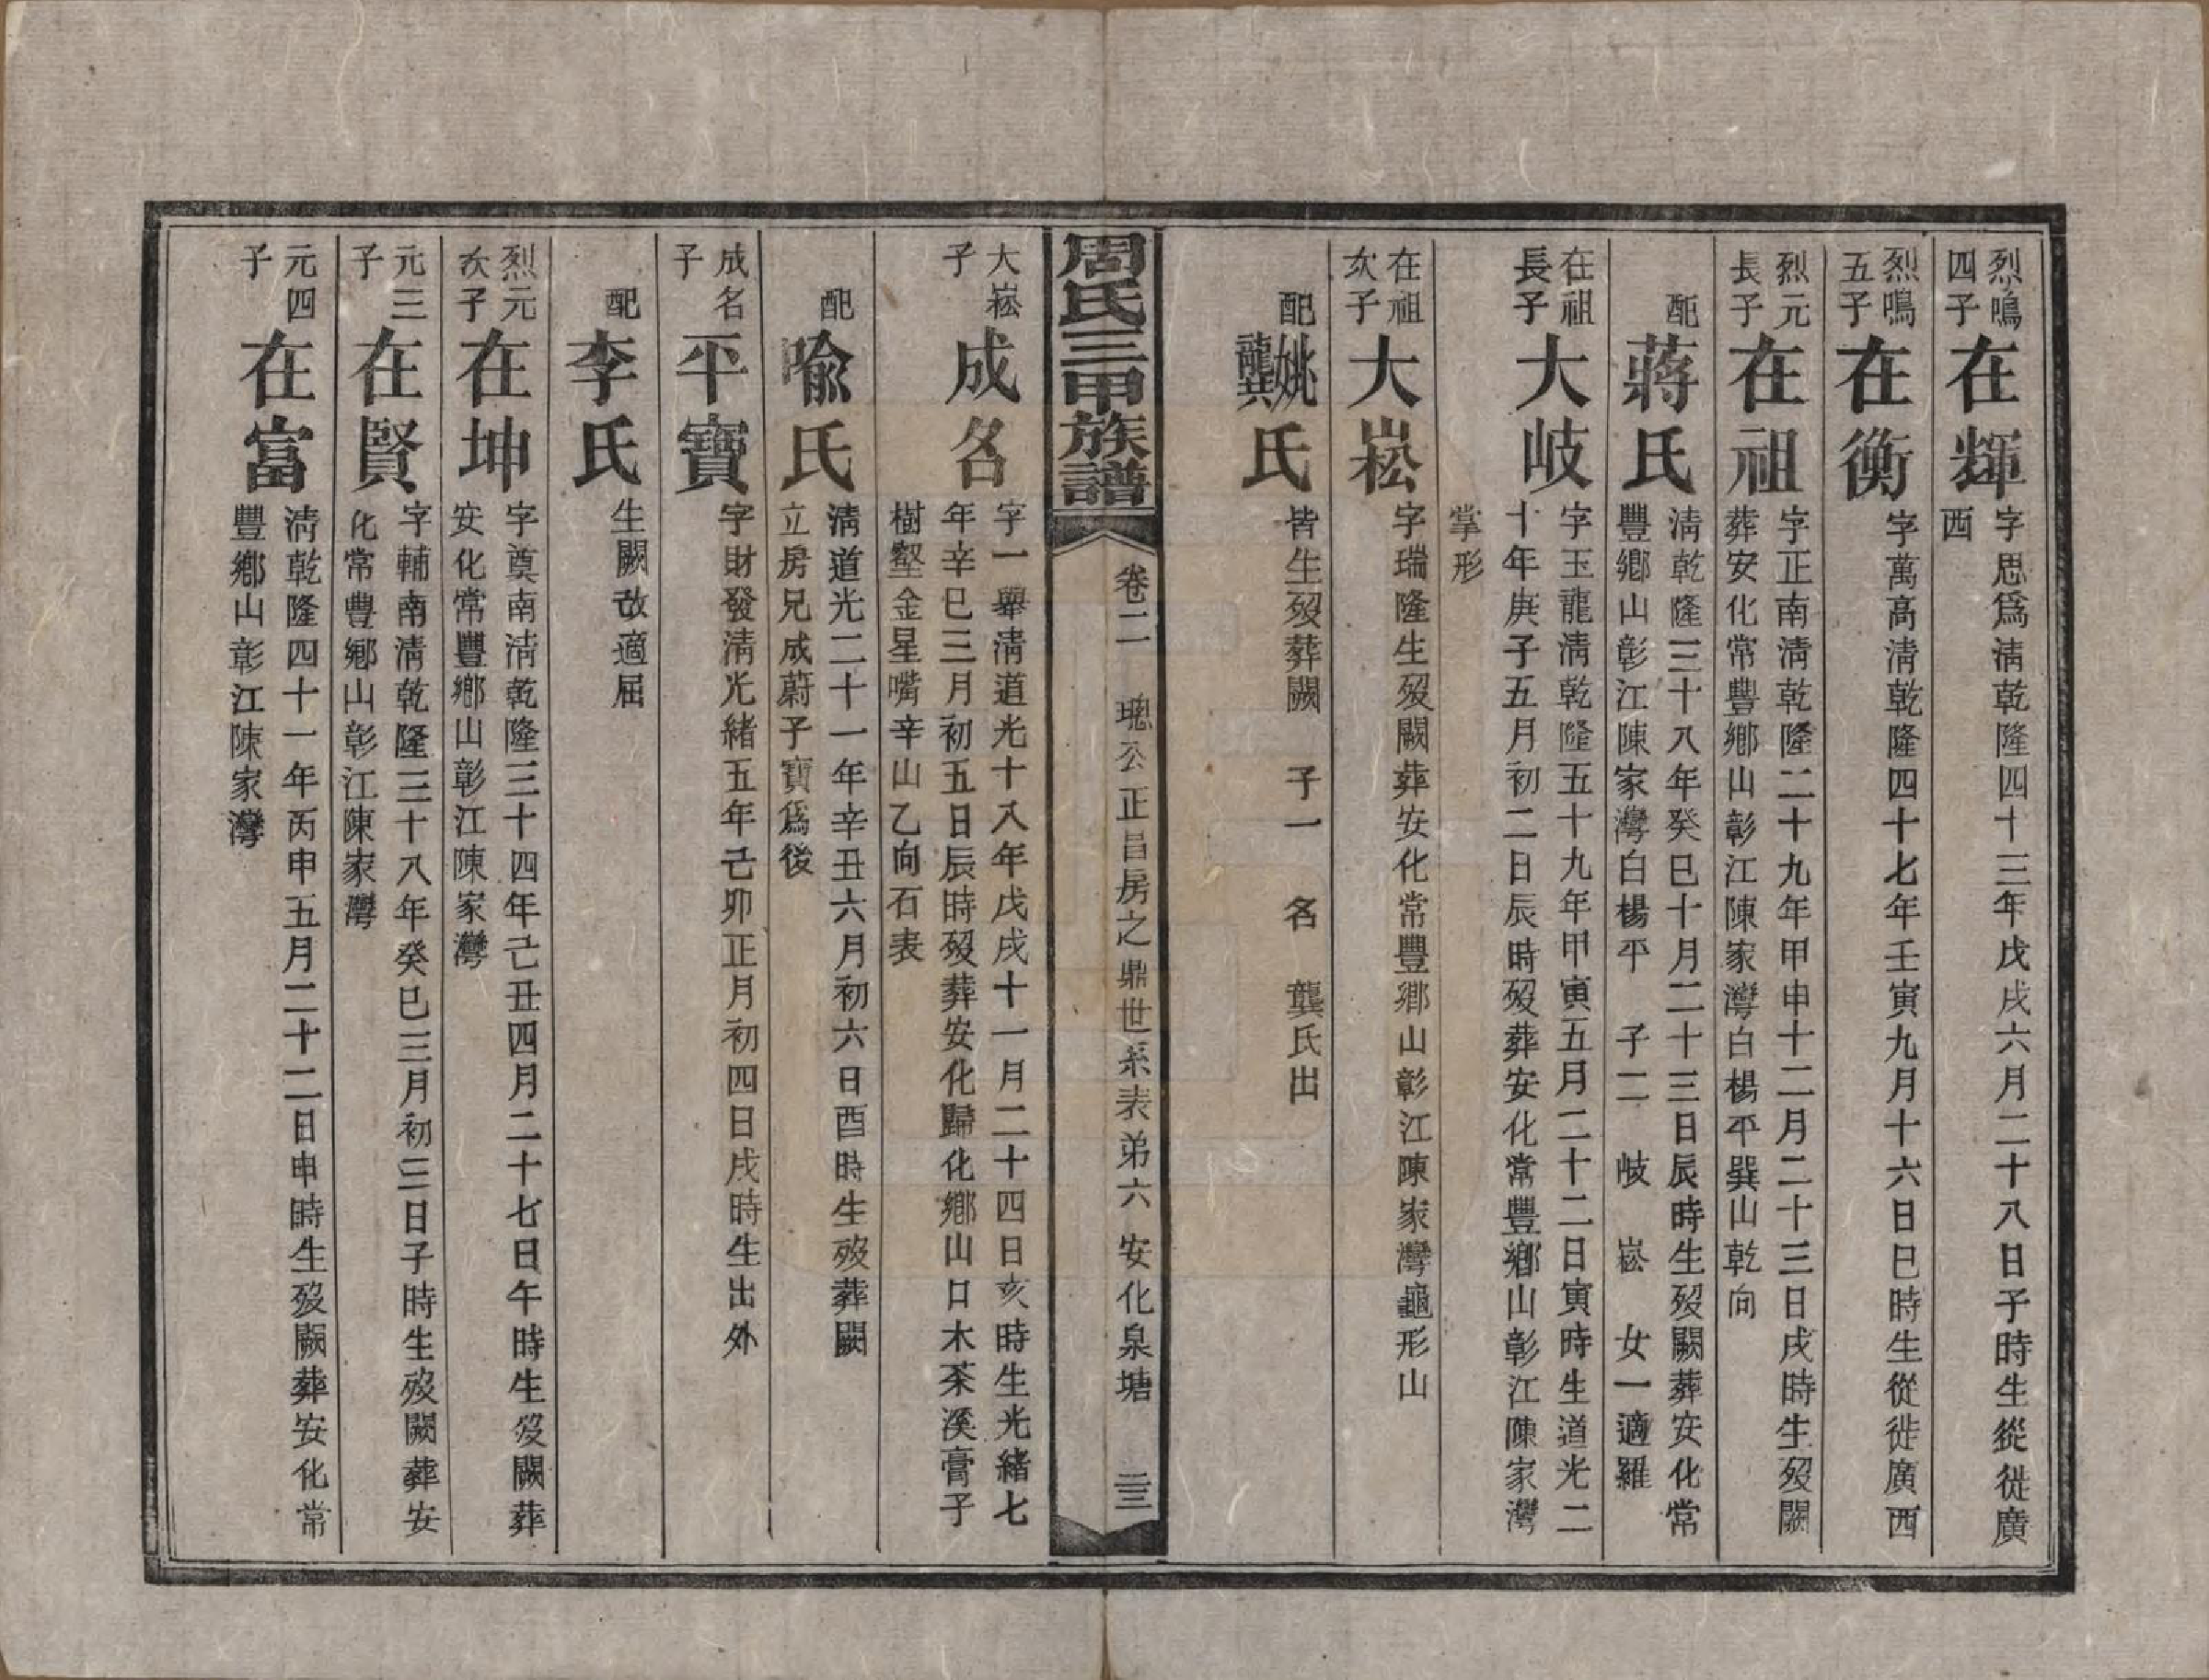 烈鳴
四子
在輝
字思爲淸乾隆四十三年戊戌六月二十八日子時生從徙廣
西
烈鳴
五子
在衡
字萬高淸乾隆四十七年壬寅九月十六日巳時生從徙廣西
烈元
長子
在祖
字正南淸乾隆二十九年甲申十二月二十三日戌時生歿闕
葬安化常豐鄉山彰江陳家灣白楊平巽山乾向
配
蔣氏
淸乾隆三十八年癸巳十月二十三日辰時生歿闕葬安化常
豐鄉山彰江陳家灣白楊平 子二 岐 崧 女一適羅
在祖
長子
大岐
字玉龍淸乾隆五十九年甲寅五月二十二日寅時生道光二
十年庚子五月初二日辰時歿葬安化常豐鄉山彰江陳家灣
掌形
在祖
次子
大崧
字瑞隆生歿闕葬安化常豐鄉山彰江陳家灣龜形山
配
姚
龔
氏
皆生歿葬闕 子一 名 龔氏出
周氏三甲族譜
卷二 璁公正昌房之鼎世系表弟六 安化泉塘 二三
大崧
子
成名
字一舉淸道光十八年戊戌十一月二十四日亥時生光緖七
年辛巳三月初五日辰時歿葬安化歸化鄉山口木茶溪膏子
樹壑金星嘴辛山乙向石表
配
喩氏
淸道光二十一年辛丑六月初六日酉時生歿葬闕
立房兄成蔚子寶爲後
成名
子
平寶
字財發淸光緖五年己卯正月初四日戌時生出外
配
李氏
生闕改適屈
烈元
次子
在坤
字奠南淸乾隆三十四年己丑四月二十七日午時生歿闕葬
安化常豐鄉山彰江陳家灣
元三
子
在賢
字輔南淸乾隆三十八年癸巳三月初三日子時生歿闕葬安
化常豐鄉山彰江陳家灣
元四
子
在富
淸乾隆四十一年丙申五月二十二日申時生歿闕葬安化常
豐鄉山彰江陳家灣